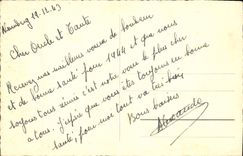 11.12.43
Cher Oncle et Tante
Recevez mes meilleurs voeux de bonheur
et de bonne santé pour 1944 et que nous
soyons tous réunis c'est notre voeu le plus cher
à tous. J'espère que vous êtes toujours en bonne
santé, pour moi tout va très bien.
Bons baisers